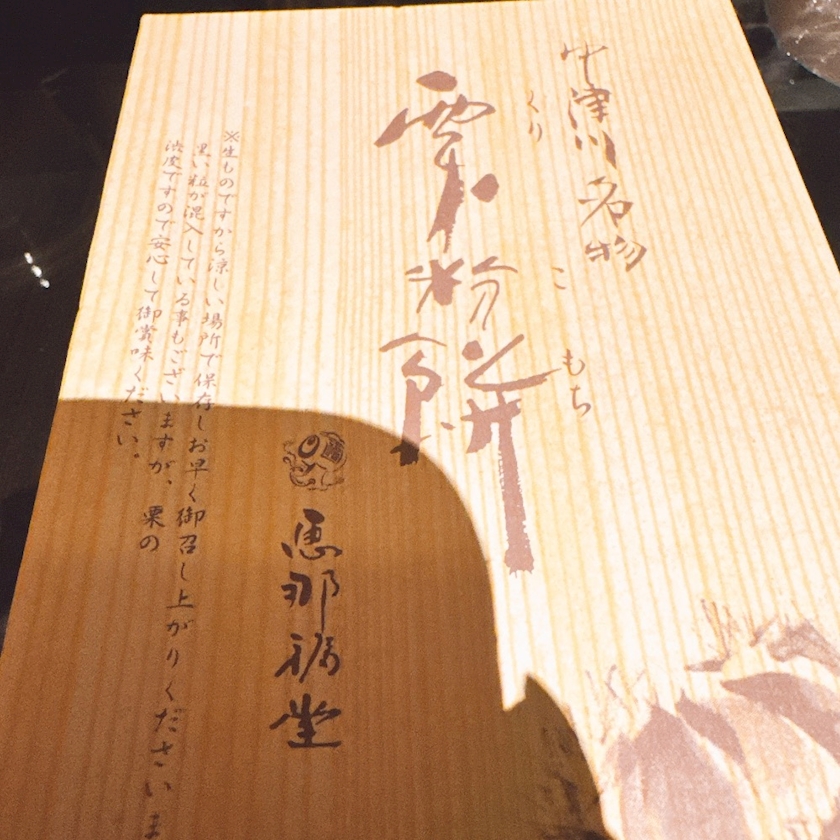 中津川名物
くりこもち
栗粉餅
恵那福堂
※生ものですから涼しい場所で保存しお早く御召し上がりくださいま
黒い粒が混入している事もございますが、栗の
渋皮ですので安心して御賞味ください。